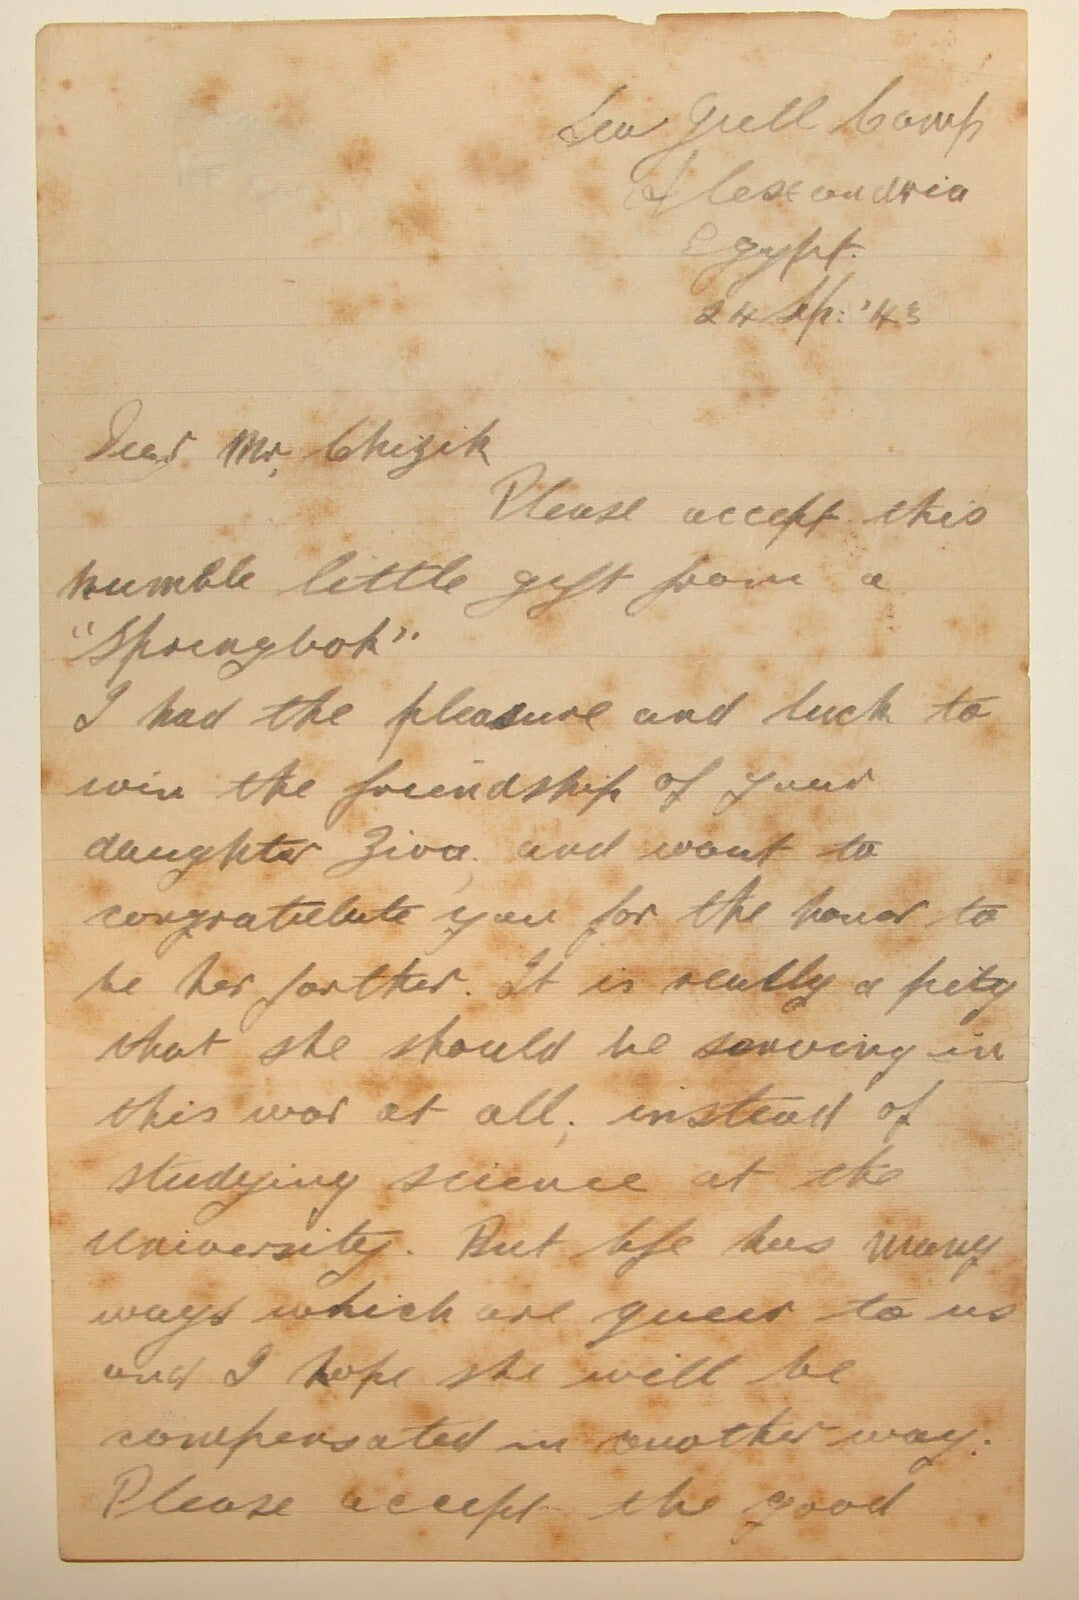 Sea Gull Camp
Alexandria
Egypt.
24 Sp: '43
Dear Mr. Chizik
Please accept this
humble little gift from a
"Springbok".
I had the pleasure and luck to
win the friendship of your
daughter Ziva, and want to
congratulate you for the honor to
be her farther. It is really a pity
that she should be serving in
this war at all, instead of
studying science at the
university. But life has many
ways which are queer to us
and I hope she will be
compensated in another way.
Please accept the good